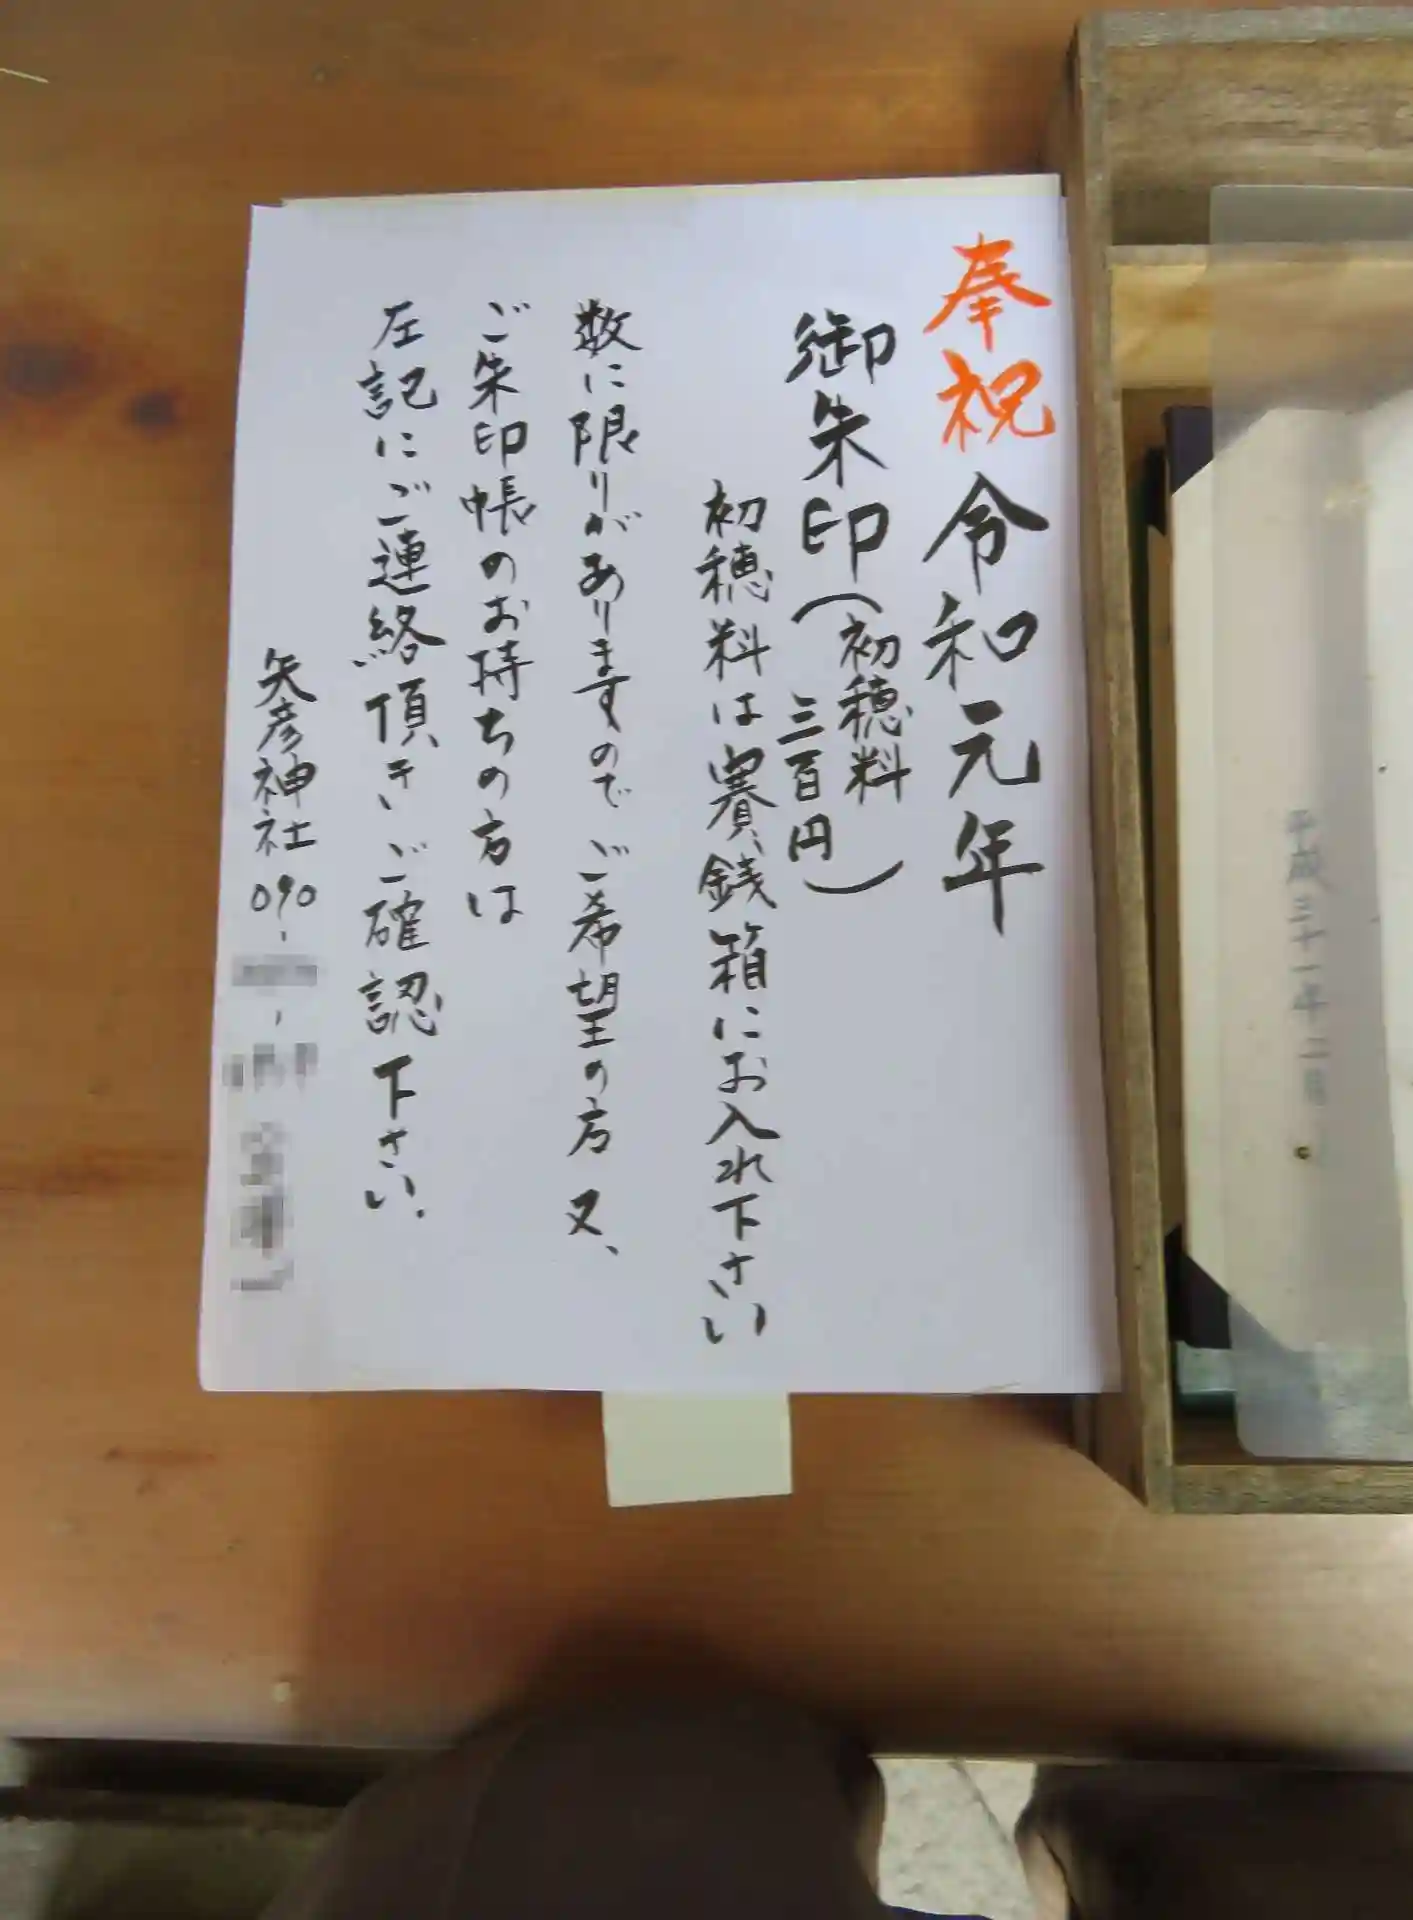 奉祝 令和元年
御朱印(初穂料 三百円)
初穂料は賽銭箱にお入れ下さい
数に限りがありますのでご希望の方 又、
ご朱印帳のお持ちの方は
左記にご連絡頂きご確認下さい.
矢彦神社 090-
平成三十一年二月